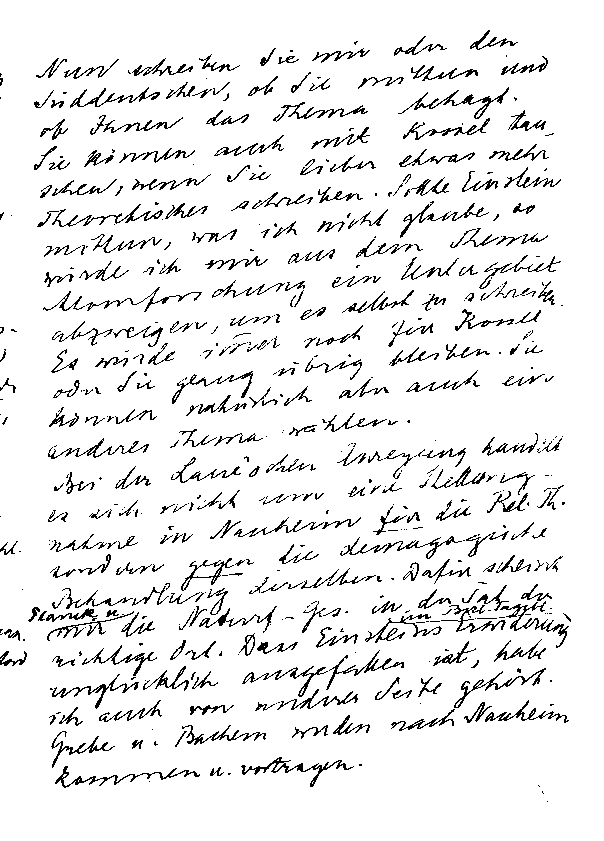 Nun schreiben Sie mir oder den
Süddeutschen, ob Sie mittun und
ob Ihnen das Thema behagt.
Sie können auch mit Kossel tau-
schen, wenn Sie lieber etwas mehr
Theoretisches schreiben. Sollte Einstein
mittun, was ich nicht glaube, so
würde ich mir aus dem Thema
Atomforschung ein Untergebiet
abzweigen, um es selbst zu schreiben.
Es würde immer noch für Kossel
oder Sie genug übrig bleiben. Sie
können natürlich aber auch ein
anderes Thema wählen.
Bei der Laue'schen Anregung handelt
es sich nicht um eine Stellung-
nahme in Nauheim für die Rel. Th.
sondern gegen die demagogische
Behandlung derselben. Dafür scheint
mir die Naturf.-Ges. in der Tat der
richtige Ort. Dass Einsteins Erwiderung
im Berl. Tagebl.
unglücklich ausgefallen ist, habe
ich auch von anderer Seite gehört.
Grebe u. Bachem werden nach Nauheim
kommen u. vortragen.